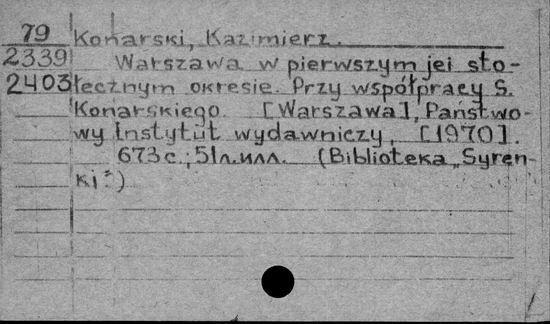 79 Konarski, Kazimierz.
2339 Warszawa w pierwszym jej sto-
2403 łecznym okresie. Przy współpracy S.
Konarskiego. [Warszawa], Państwo-
wy Instytut wydawniczy, [1970].
673 с.; 51 л. илл. (Biblioteka „Syren-
ki")